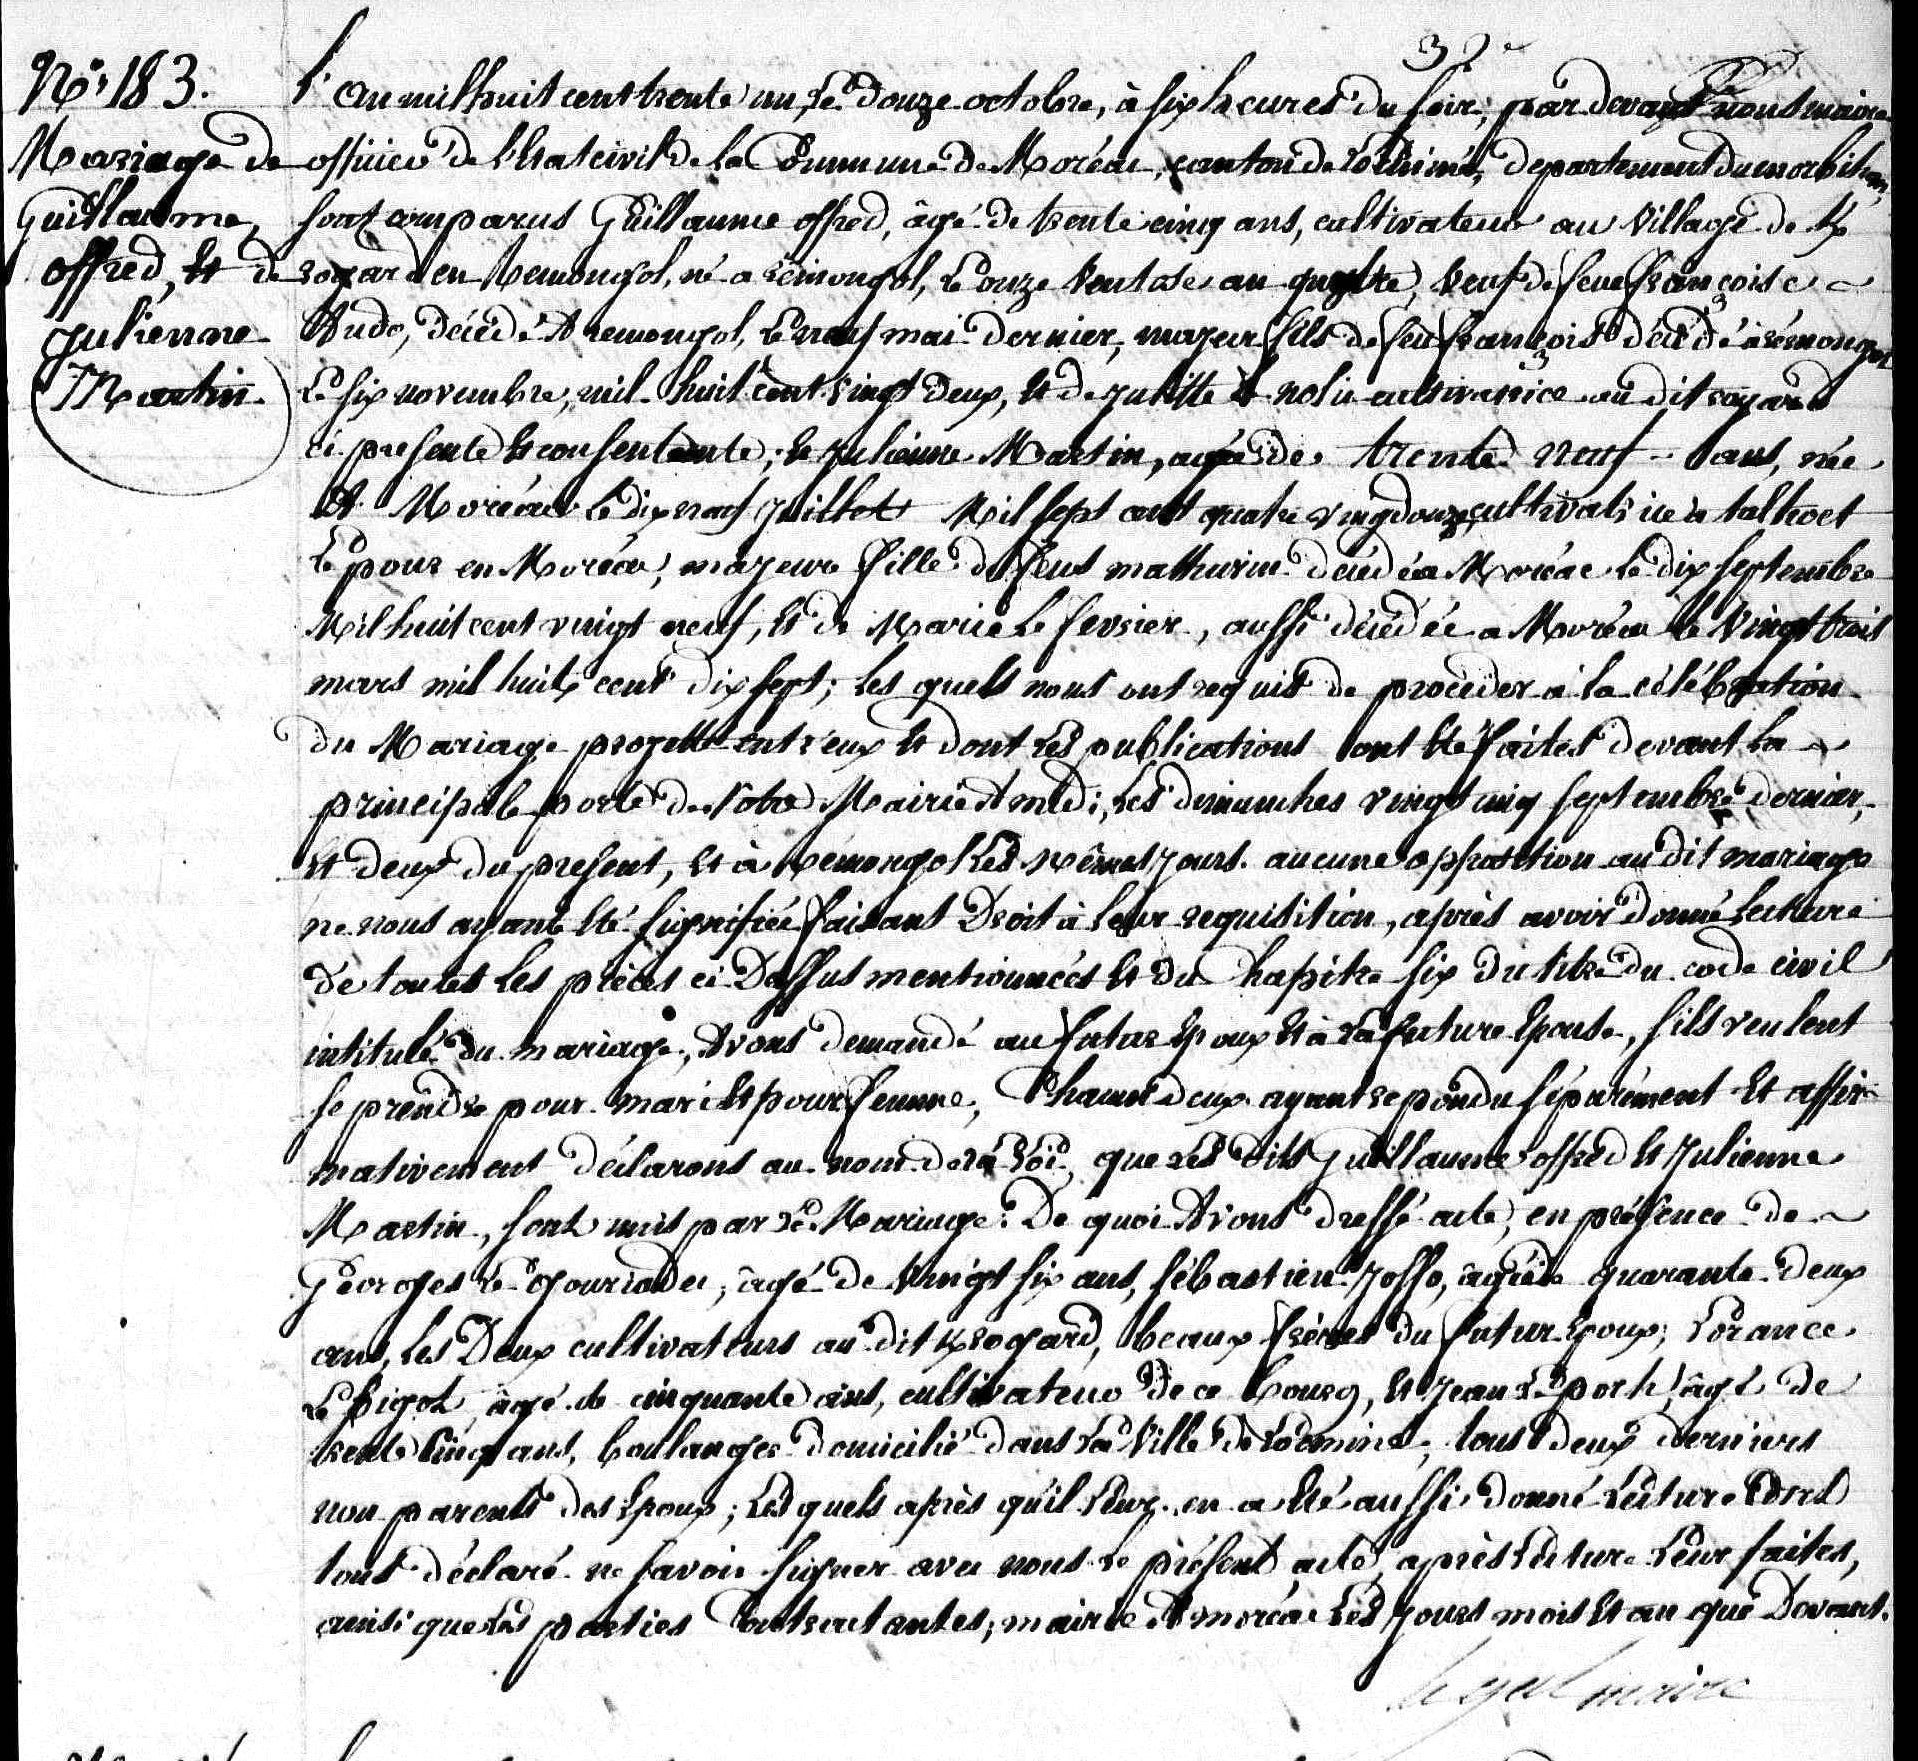 32e
N° 183.
Mariage de
Guillaume
offred, Et de
Julienne
Martin.
L'an mil huit cent trente un, Le douze octobre, à six heures du soir, par devant nous maire
officier de l'Etat civil de la Commune de Moréac, canton de Locminé, departement du morbihan,
sont comparus Guillaume offred, âgé de trente cinq ans, cultivateur au village de K
rogard en Remongol, né a rémongol, Le onze Ventose an quatre, Veuf de feue françoise
Audo, décédé A remongol, Le neuf mai dernier, majeur fils de feu françois décédé à rémongol
Le six novembre, mil huit cent vingt deux, Et de Julitte nolic cultivatrice au dit rogard
ci presente Et consentante; Et Julienne Martin, agée de trente neuf ans, née
A Moréac Le dix neuf Juillet Mil sept cent quatre vingdouze, cultivatrice à talhoet
Le pour en Moréac, majeure fille de feus mathurin décédé a Moréac Le dix septembre
Mil huit cent vingt neuf, Et de Marie Le fevrier, aussi décédée a Moréac le vingt trois
mars mil huit cent dix sept; Les quels nous ont requis de procéder à la célébration
du Mariage projetté entr'eux Et dont Les publications ont Eté faites devant La
principale porte de Notre Mairie A midi; Les dimanches vingt cinq septembre dernier,
Et deux du present, Et à Rémongol Les Mêmes Jours. aucune opposition au dit mariage
ne nous ayant Eté signifiée faisant Droit à Leur requisition, après avoir donné Lecture
De toutes Les pièces ci Dessus mentionnées Et du Chapitre six du titre du code civil
intitulé du mariage, Avons demandé au futur Epoux Et à La future Epouse, s'ils veulent
se prendre pour mari Et pour femme, Chacun deux ayant repondu séparément Et affir
mativement déclarons au nom de La Loi, que Les dits Guillaume offred Et Julienne
Martin, sont unis par Le Mariage. De quoi Avons dressé acte, en présence de
Georges Le Gouriader, âgé de vingt six ans, sébastien Josso, âgé de quarante deux
ans, Les Deux cultivateurs au dit Krogard, beaux frères du futur Epoux; Lorance
Le bigot, âgé de cinquante ans, cultivateur de ce bourg, Et Jean Le porh, âgé de
trente Cinq ans, boulanger domicilié dans La Ville de Locminé, tous deux derniers
non parents des Epoux; Les quels après qu'il Leur en a Eté aussi donné Lecture
tous déclaré ne savoir signer avec nous Le présent acte, après Lecture Leur faites,
ainsi que Les parties Contractantes; mairie A moréac Les Jours mois Et an que Devant.
maire